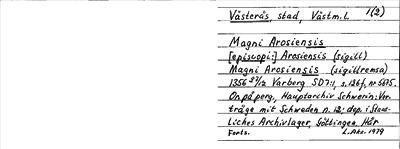 Västerås, stad, Västm.l. 1(2)
Magni Arosiensis
[episcopi:] Arosiensis (sigill)
Magni Arosiensis (sigillremsa)
1356 Varberg SD7:1, s.126f, nr 5875.
Or. på perg, Hauptarchiv Schwerin: Ver
träge mit Schweden n. 12; dep. i Staat
liches Archivlager, Göttingen, Här
Forts. L.Abr. 1979